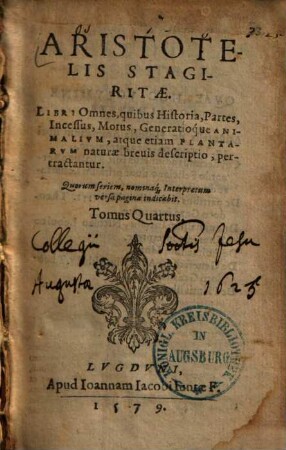 ARISTOTE-
LIS STAGI-
RITÆ.
LIBRI Omnes, quibus Historia, Partes,
Incessus, Motus, Generatioque ANI-
MALIVM, atque etiam PLANTA-
RVM naturæ breuis descriptio, per-
tractantur.
Quorum seriem, nominaq; Interpretum
versa pagina indicabit.
Tomus Quartus.
Collegii Soctis Jesu
Augustæ 1625
KÖNIGL. KREISBIBLIOTHEK
IN
AUGSBURG
LVGDVNI,
Apud Ioannam Iacobi Iuntæ F.
1579.